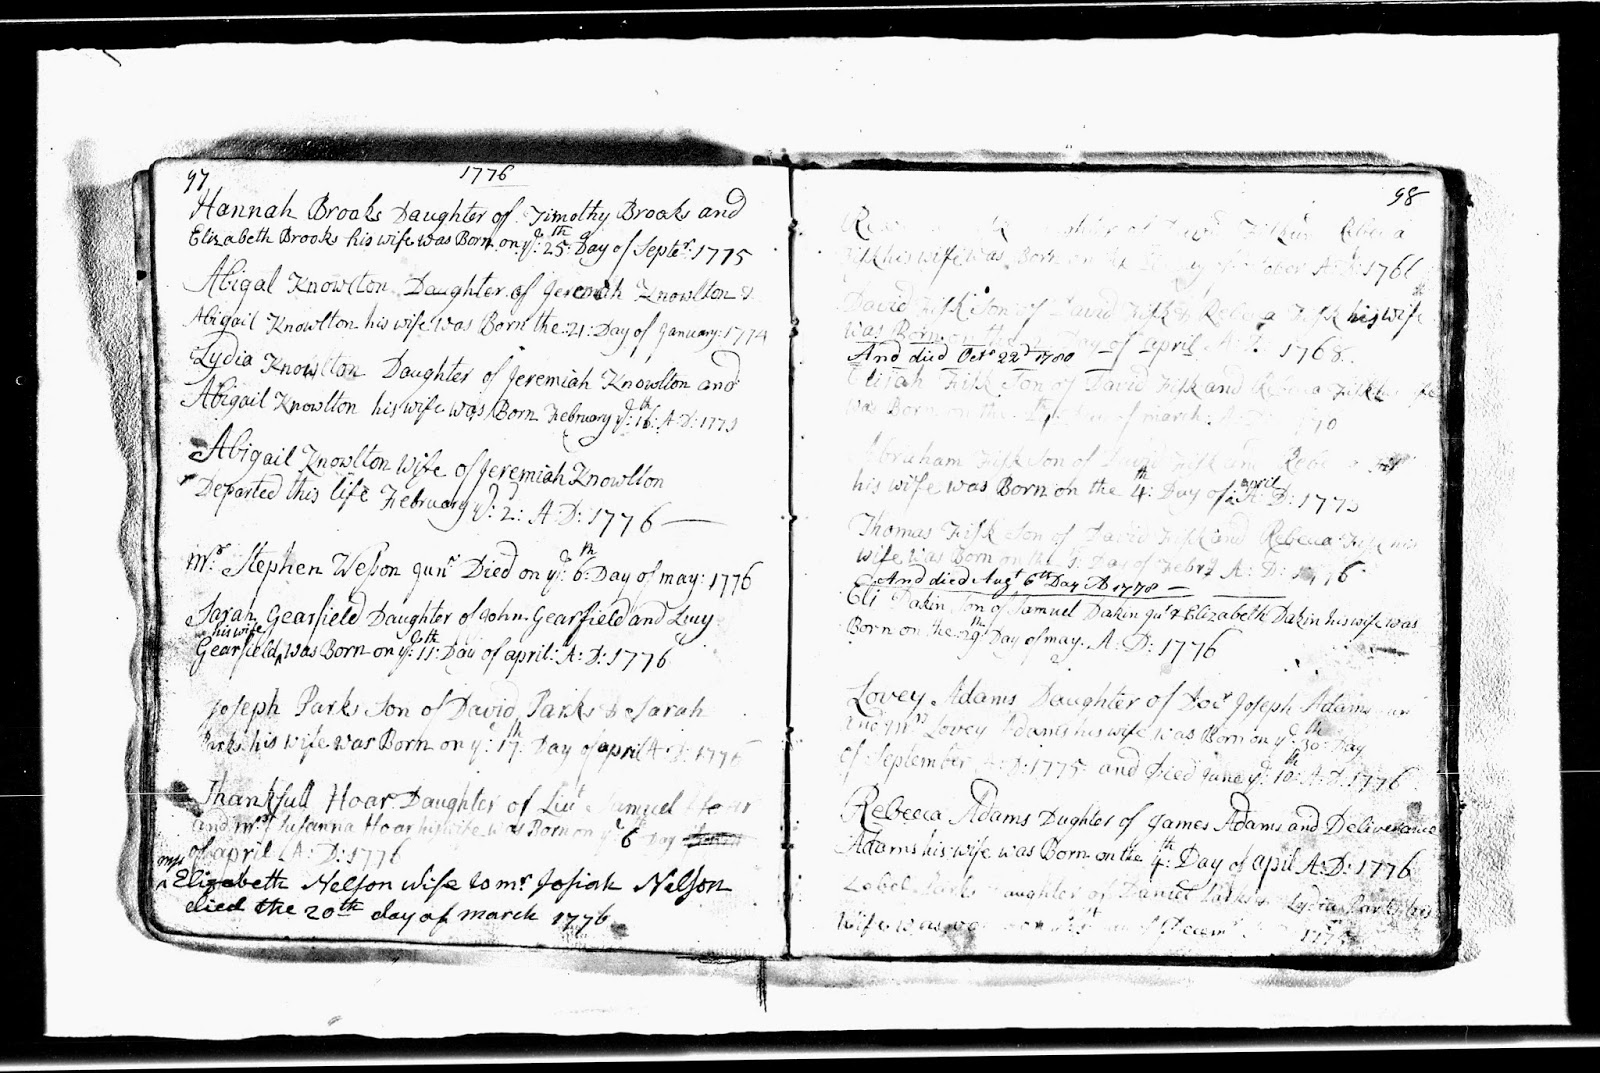 97
1776
Hannah Brooks Daughter of Timothy Brooks and
Elizabeth Brooks his wife was Born on ye: 25th: Day of Septer: 1775
Abigal Knowlton Daughter of Jeremiah Knowlton &
Abigail Knowlton his wife was Born the: 21: Day of January: 1774
Lydia Knowlton Daughter of Jeremiah Knowlton and
Abigail Knowlton his wife was Born February ye: 16th: A:D: 1773
Abigail Knowlton Wife of Jeremiah Knowlton
Departed this life February ye: 2d: A:D: 1776
Mr. Stephen Wesson Junr Died on ye: 6th: Day of may: 1776
Sarah Gearfield Daughter of John Gearfield and Lucy
his wife
Gearfield ^ was Born on ye: 11th: Day of april: A:D: 1776
Joseph Parks Son of David Parks & Sarah
Parks his wife was Born on ye: 17th: Day of april A:D: 1776
Thankfull Hoar Daughter of Liut Samuel Hoar
and Mrs Susanna Hoar his wife was Born on ye 6 Day
of april A:D: 1776
mrs
^ Elizabeth Nelson wife to mr Josiah Nelson
died the 20th day of march 1776
98
Daughter of David Fisk Rebeca
Fisk his wife was Born on October A:D: 1766
David Fisk Son of David Fisk & Rebeca Fisk his wife
was Born on the Day of april A:D: 1768
And died Octr 22d 1780
Elijah Fisk Son of David Fisk and Rebeca Fisk his
was Born on the of march A:D:
Abraham Fisk Son of David Fisk and Rebeca Fisk
his wife was Born on the 4th: Day of april A:D: 1773
Thomas Fisk Son of David Fisk and Rebeca Fisk his
wife was Born on the Day of Febry A:D: 1776
And died Augt 6th Day AD 1778
Eli Dakin Son of Samuel Dakin jur & Elizabeth Dakin his wife was
Born on the 29th: Day of may. A:D: 1776
Lovey Adams Daughter of Docr Joseph Adams
and Mrs Lovey Adams his wife was Born on ye: 30th: Day
of September A:D: 1775 and Died June ye: 10th: A:D: 1776
Rebecca Adams Dughter of James Adams and Deliverance
Adams his wife was Born on the 4th: Day of april A:D: 1776
Daughter of Daniel Parks & Lydia Parks his
Wife was Decemr 1775